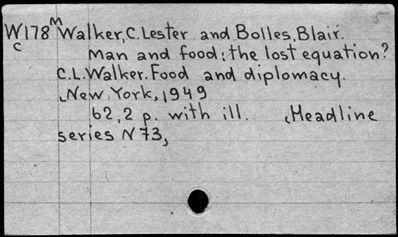 W178 M Walker, C. Lester and Bolles, Blair.
C Man and food; the lost equation?
C.L. Walker. Food and diplomacy.
New York, 1949
62, 2 p. with ill. (Headline
series N 73,